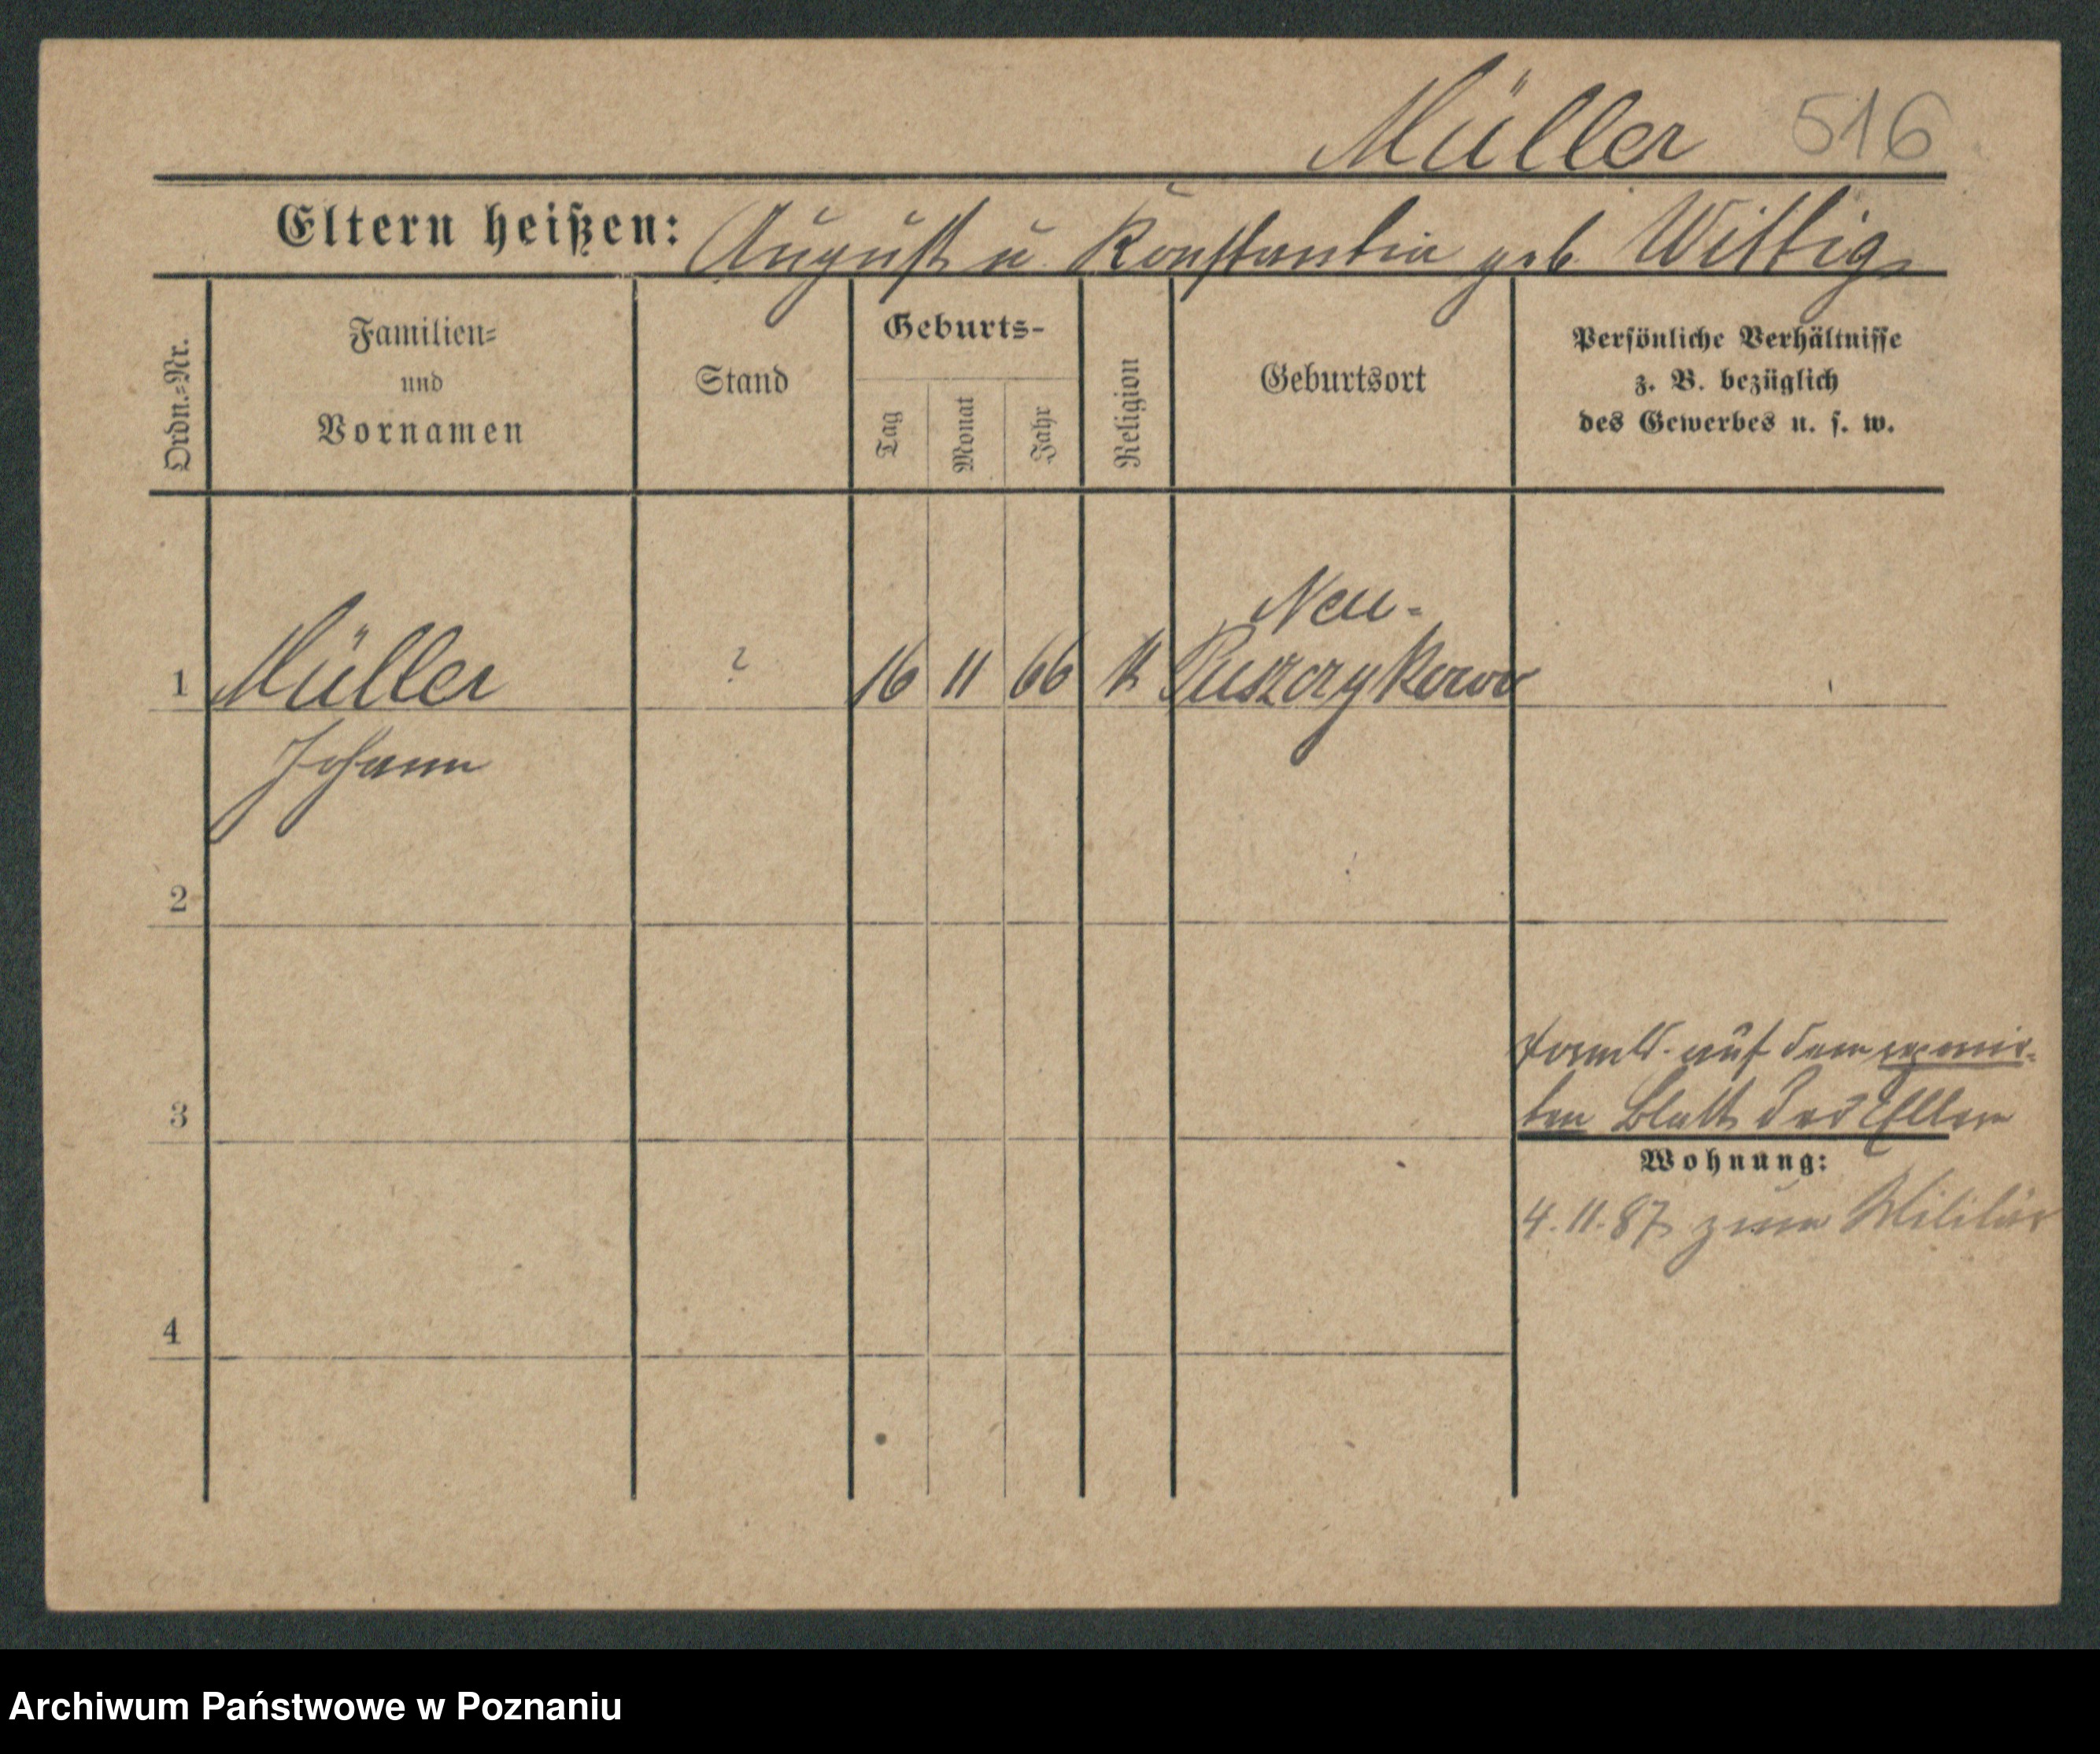 Müller 516
Eltern heißen: August u Konstantia geb Wittig
Ordn.-Nr.
Familien-
und
Vornamen
Stand
Geburts-
Tag
Monat
Jahr
Religion
Geburtsort
Persönliche Verhältnisse
z. B. bezüglich
des Gewerbes u. s. w.
Neu-
1 Müller ? 16 11 66 K Puszczykowo
Johann
2
auf dem
3
ten Blatt der Eltern
Wohnung:
4. 11. 87 zum Militär
4
Archiwum Państwowe w Poznaniu